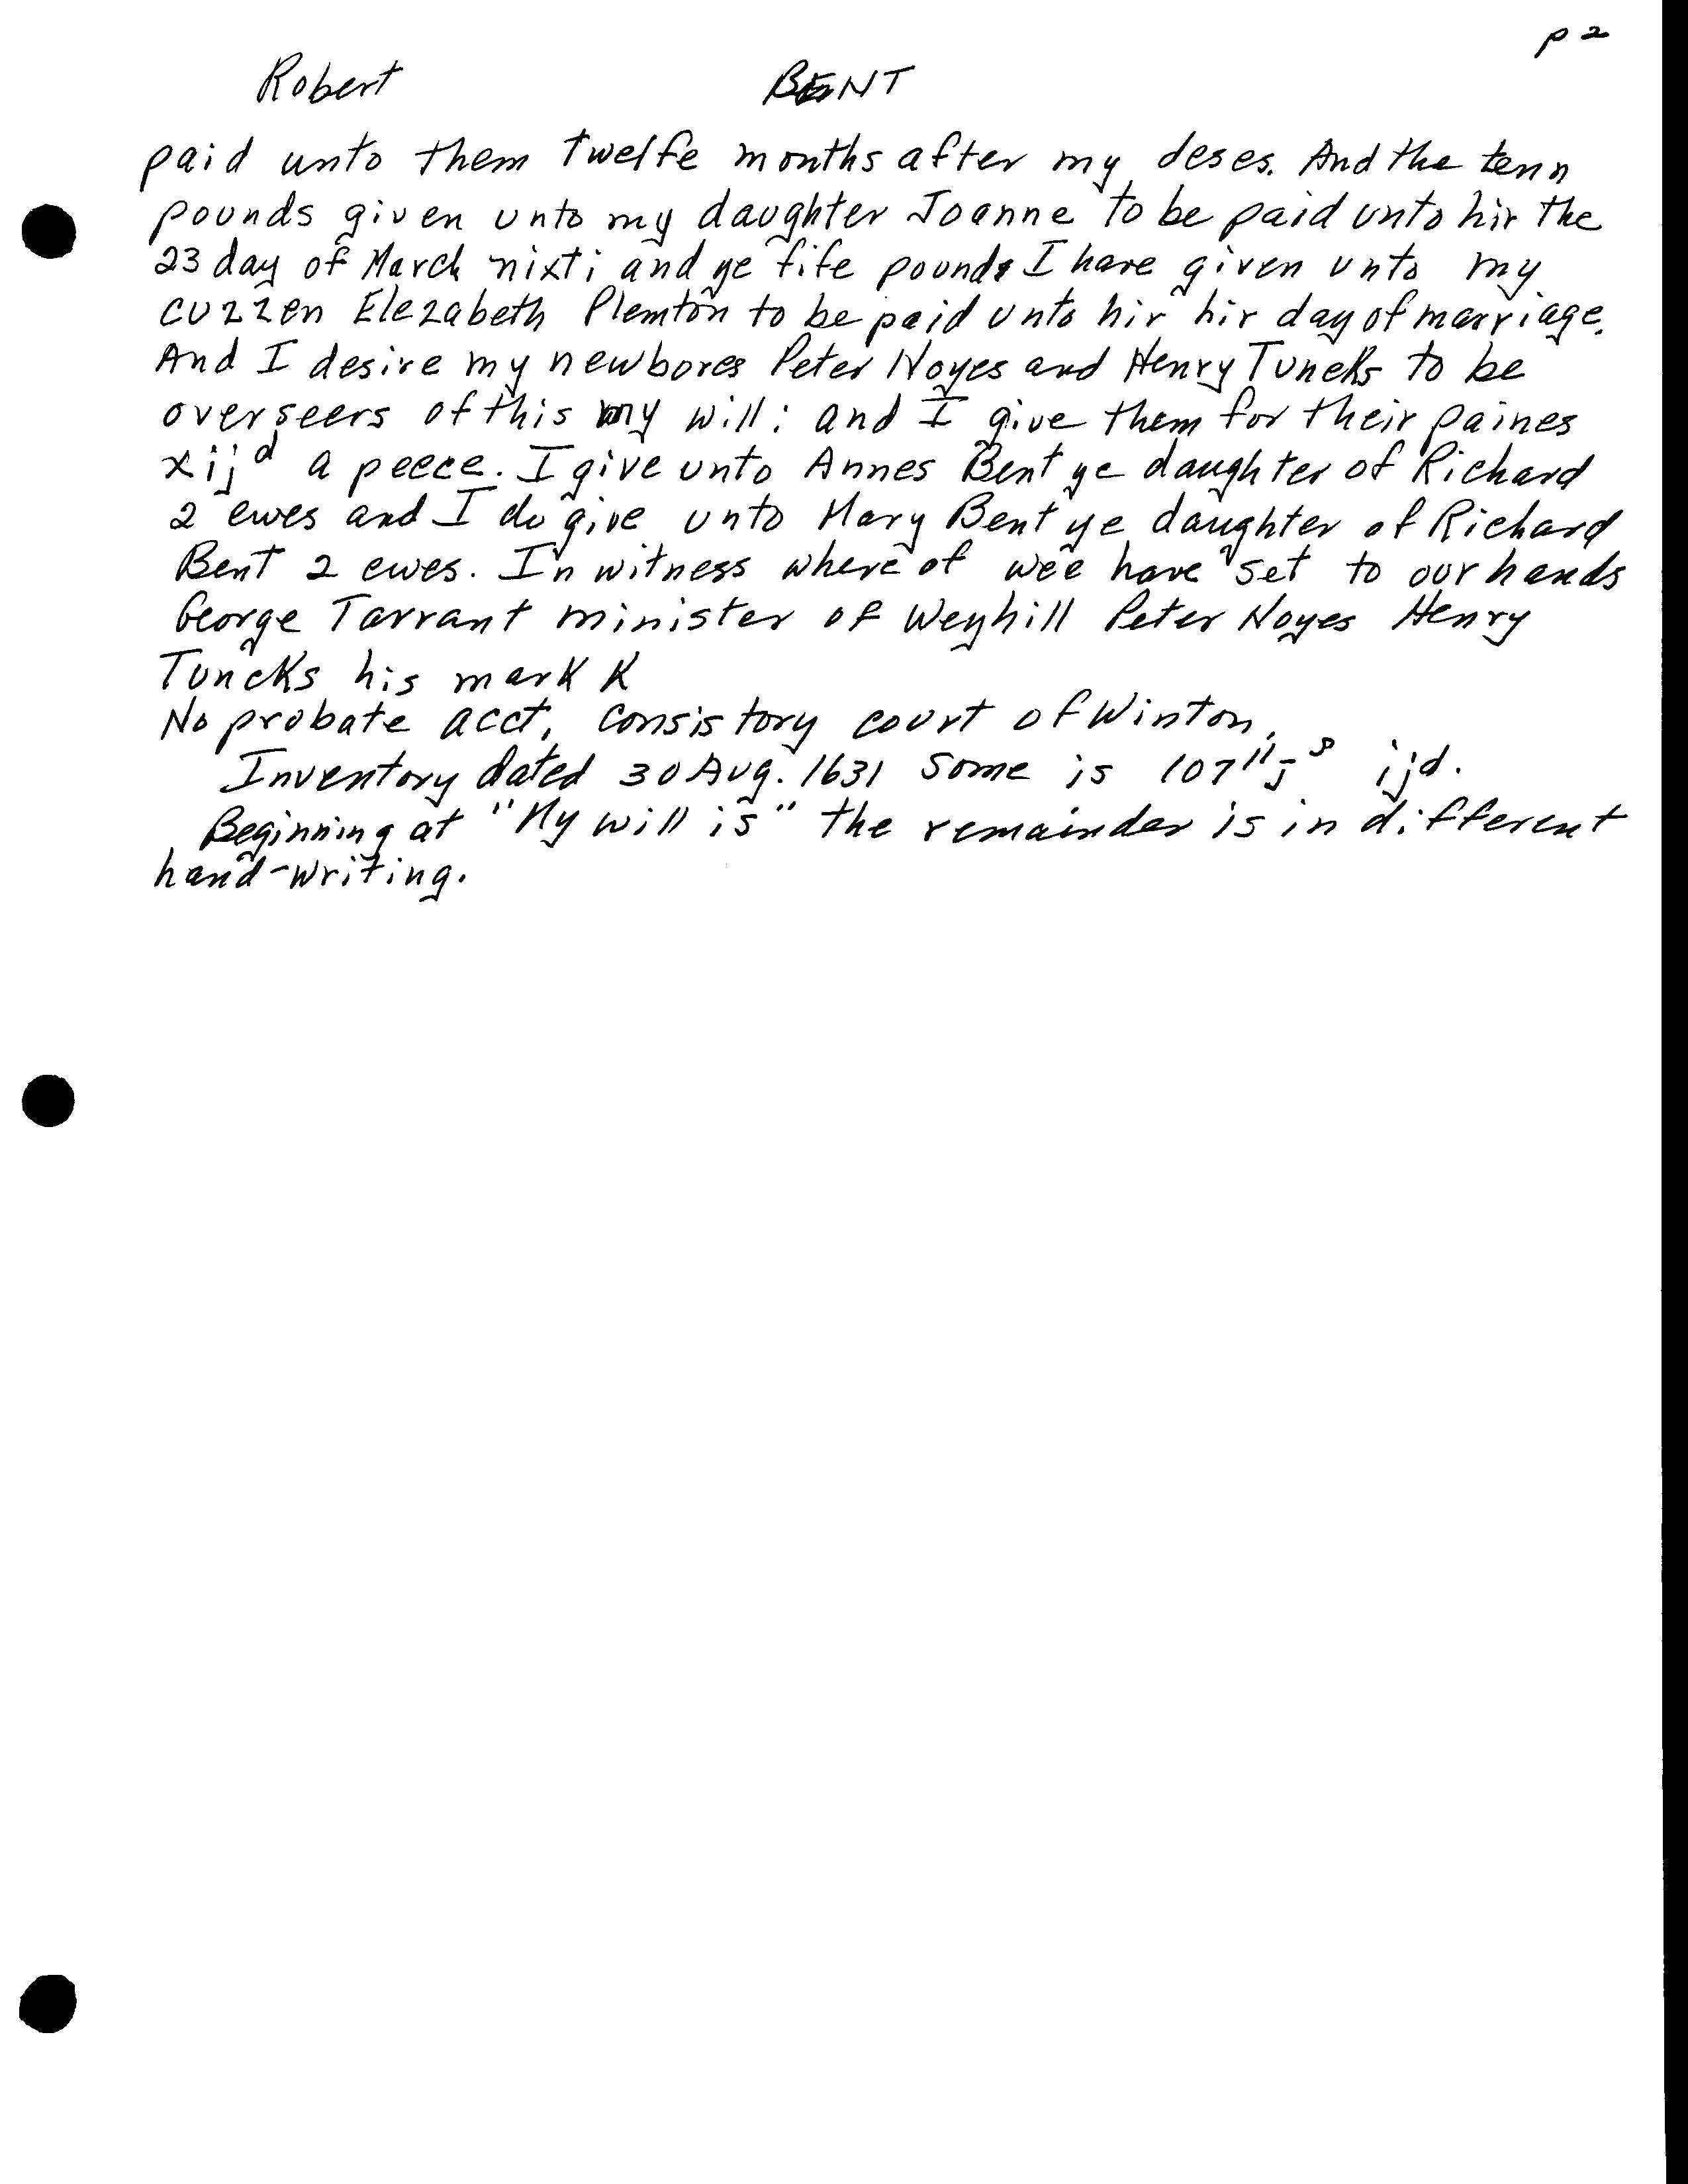 p 2
Robert BENT
paid unto them twelfe months after my deses. And the tenn
pounds given unto my daughter Joanne to be paid unto hir the
23 day of March nixt; and ye fife pounds I have given unto my
cuzzen Elezabeth Plemton to be paid unto hir hir day of marriage.
And I desire my newbores Peter Noyes and Henry Tuncks to be
overseers of this my will: and I give them for their paines
xijd a peece. I give unto Annes Bent ye daughter of Richard
2 ewes and I do give unto Mary Bent ye daughter of Richard
Bent 2 ewes. In witness where of wee have set to our hands
George Tarrant minister of Weyhill Peter Noyes Henry
Tuncks his mark K
No probate acct, Consistory court of Winton,
Inventory dated 30 Aug. 1631 Some is 107ll js ijd.
Beginning at "My will is" the remainder is in different
hand-writing.